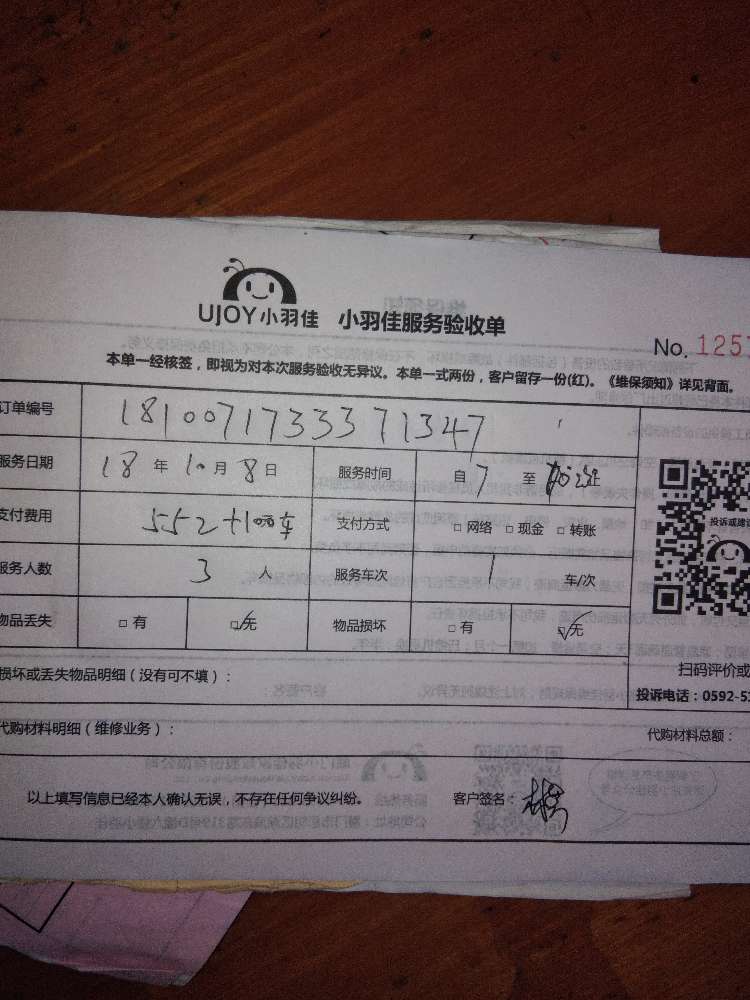 UJOY小羽佳 小羽佳服务验收单
No. 1257
本单一经核签，即视为对本次服务验收无异议。本单一式两份，客户留存一份(红)。《维保须知》详见背面。
订单编号 181007173337 1347
服务日期 18 年 10 月 8 日 服务时间 自 7 至 止
支付费用 552+100车 支付方式 □ 网络 □ 现金 □ 转账
服务人数 3 人 服务车次 1 车/次
物品丢失 □ 有 □ 无 物品损坏 □ 有 □ 无
投诉或建议
扫码评价或
投诉电话：0592-5
损坏或丢失物品明细（没有可不填）：
代购材料明细（维修业务）： 代购材料总额：
以上填写信息已经本人确认无误，不存在任何争议纠纷。 客户签名：